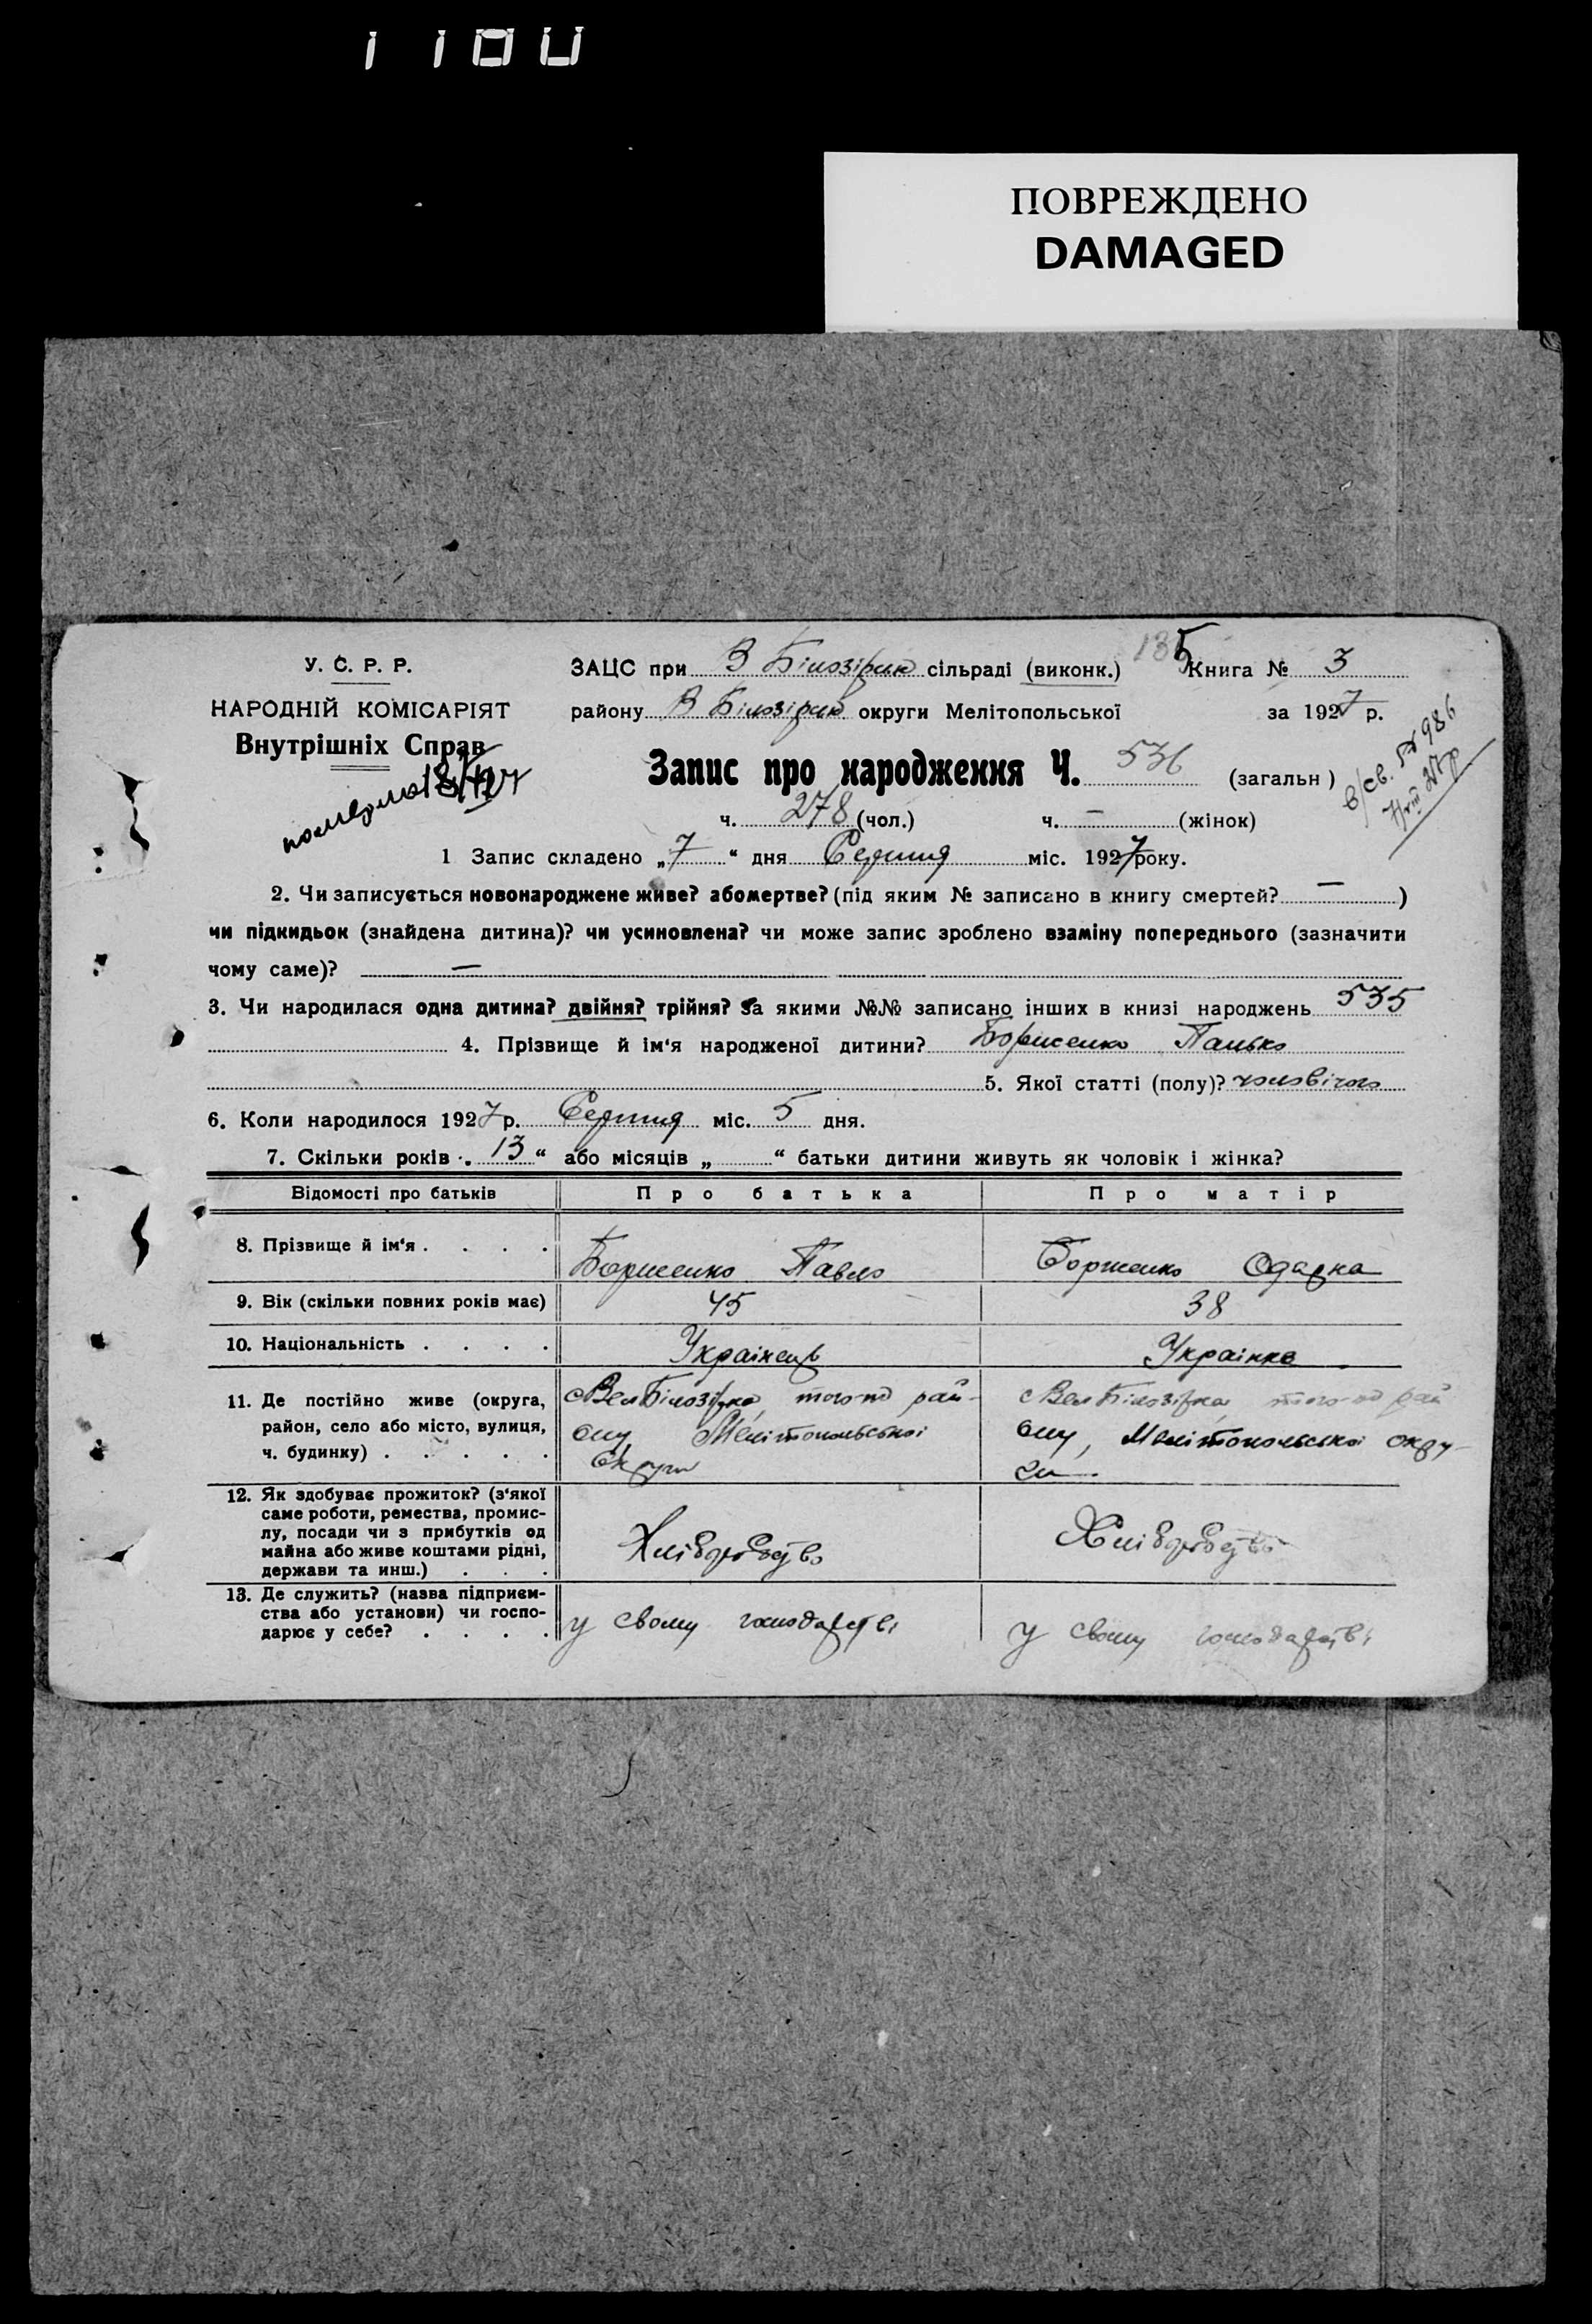 ПОВРЕЖДЕНО
DAMAGED
У. С. Р. Р.
НАРОДНІЙ КОМІСАРІЯТ
Внутрішніх Справ
135
ЗАЦС при В Білозірск сільраді (виконк.) Книга № 3
району В Білозірск округи Мелітопольської за 1927 р.
Запис про народження Ч. 536 (загальн)
ч. 278 (чол.) ч. — (жінок)
1 Запис складено „7“ дня Серпня міс. 1927 року.
2. Чи записується новонароджене живе? або мертве? (під яким № записано в книгу смертей? — )
чи підкидьок (знайдена дитина)? чи усиновлена? чи може запис зроблено взаміну попереднього (зазначити
чому саме)? —
3. Чи народилася одна дитина? двійня? трійня? За якими №№ записано інших в книзі народжень 535
4. Прізвище й ім‘я народженої дитини? Борисенко Панько
5. Якої статті (полу)? чоловічого
6. Коли народилося 1927 р. Серпня міс. 5 дня.
7. Скільки років „ 13 “ або місяців „ “ батьки дитини живуть як чоловік і жінка?
Відомості про батьків Про батька Про матір
8. Прізвище й ім‘я . . . . Борисенко Павло Борисенко Одарка
9. Вік (скільки повних років має) 45 38
10. Національність . . . . Українець Українка
11. Де постійно живе (округа, район, село або місто, вулиця, ч. будинку) . . . . .
с Вел Білозірка, того-ж рай-
ону, Мелітопольської
Округи
с Вел Білозірка, того-ж рай
ону, Мелітопольської окру-
ги.
12. Як здобуває прожиток? (з‘якої
саме роботи, ремества, промис-
лу, посади чи з прибутків од
майна або живе коштами рідні,
держави та инш.) . . .
Хліборобство Хліборобство
13. Де служить? (назва підприєм-
ства або установи) чи госпо-
дарює у себе? . . . .
у свому господарстві у свому господарстві